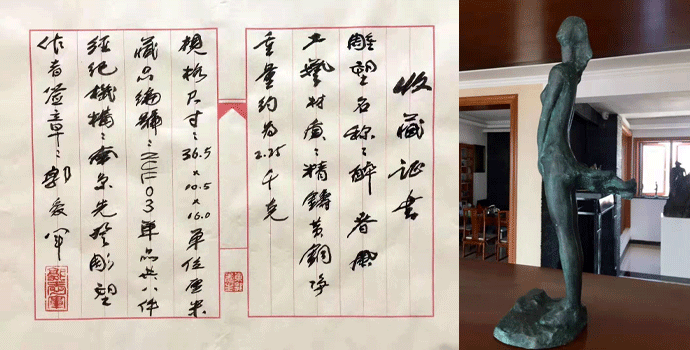 收藏证书
雕塑名称：醉春风
工艺材质：精铸黄铜净
重量约为2.25千克
规格尺寸：36.5×10.5×16.0单位厘米
藏品编号：NEF03单品共八件
经纪机構：南京先登彫塑
作者签章：郭爱军